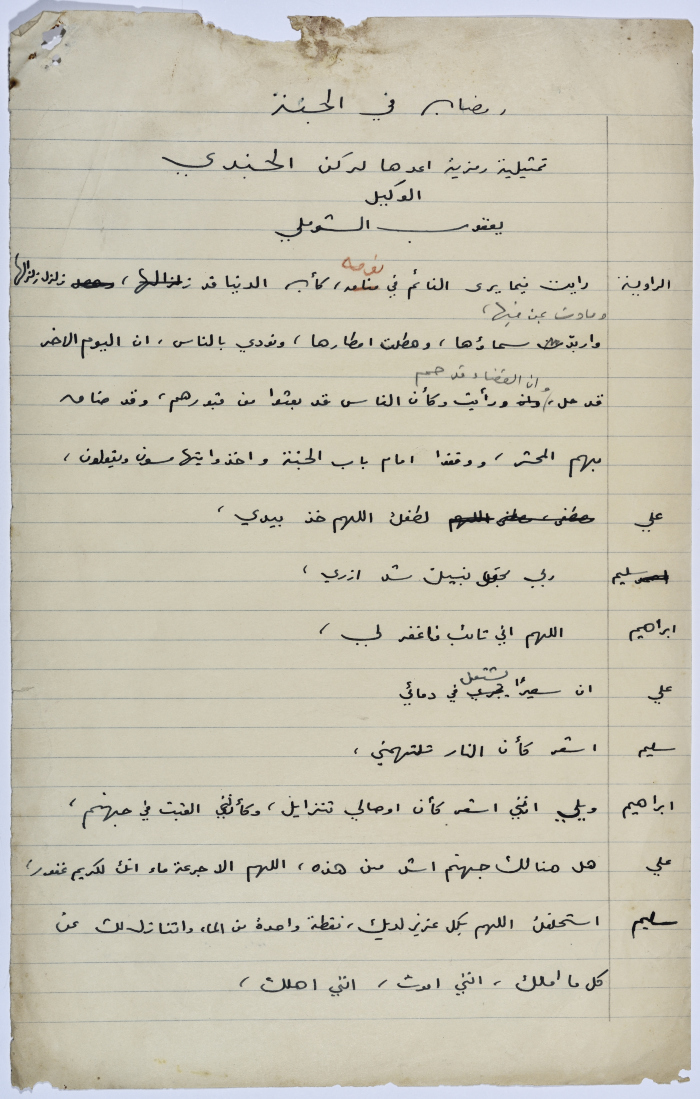 رمضان في الجنة
تمثيلية رمزية اعدها لركن الجندي
الوكيل
يعقوب الشوملي
الراوية رايت فيما يرى النائم في نومه، كأن الدنيا قد زلزالها، زلزل زلزالها
ومادت بمن فيها،
واربدّت سماؤها، وهطلت امطارها، ونودي بالناس، ان اليوم الاخر
وان القضاء قد حمم
قد حل، ورأيت وكأن الناس قد بعثوا من قبورهم، وقد ضاق
بهم المحشر، ووقفوا امام باب الجنة واخذوا يتهامسون ويقولون،
علي لطفك اللهم خذ بيدي،
سليم ربي بحق نبيك شد ازري،
ابراهيم اللهم اني تائب فاغفر لي،
علي ان سعيرًا يجري يشتعل في دمائي
سليم اشعر كأن النار تلتهمني،
ابراهيم ويلي انني اشعر كأن اوصالي تتزايل، وكأنني القيت في جهنم،
علي هل هنالك جهنم اشد من هذه، اللهم الا جرعة ماء انك لكريم غفور،
سليم استحلفك اللهم بكل عزيز لديك، نقطة واحدة من الماء، واتنازل لك عن
كل ما املك، انني اموت، انني اهلك،